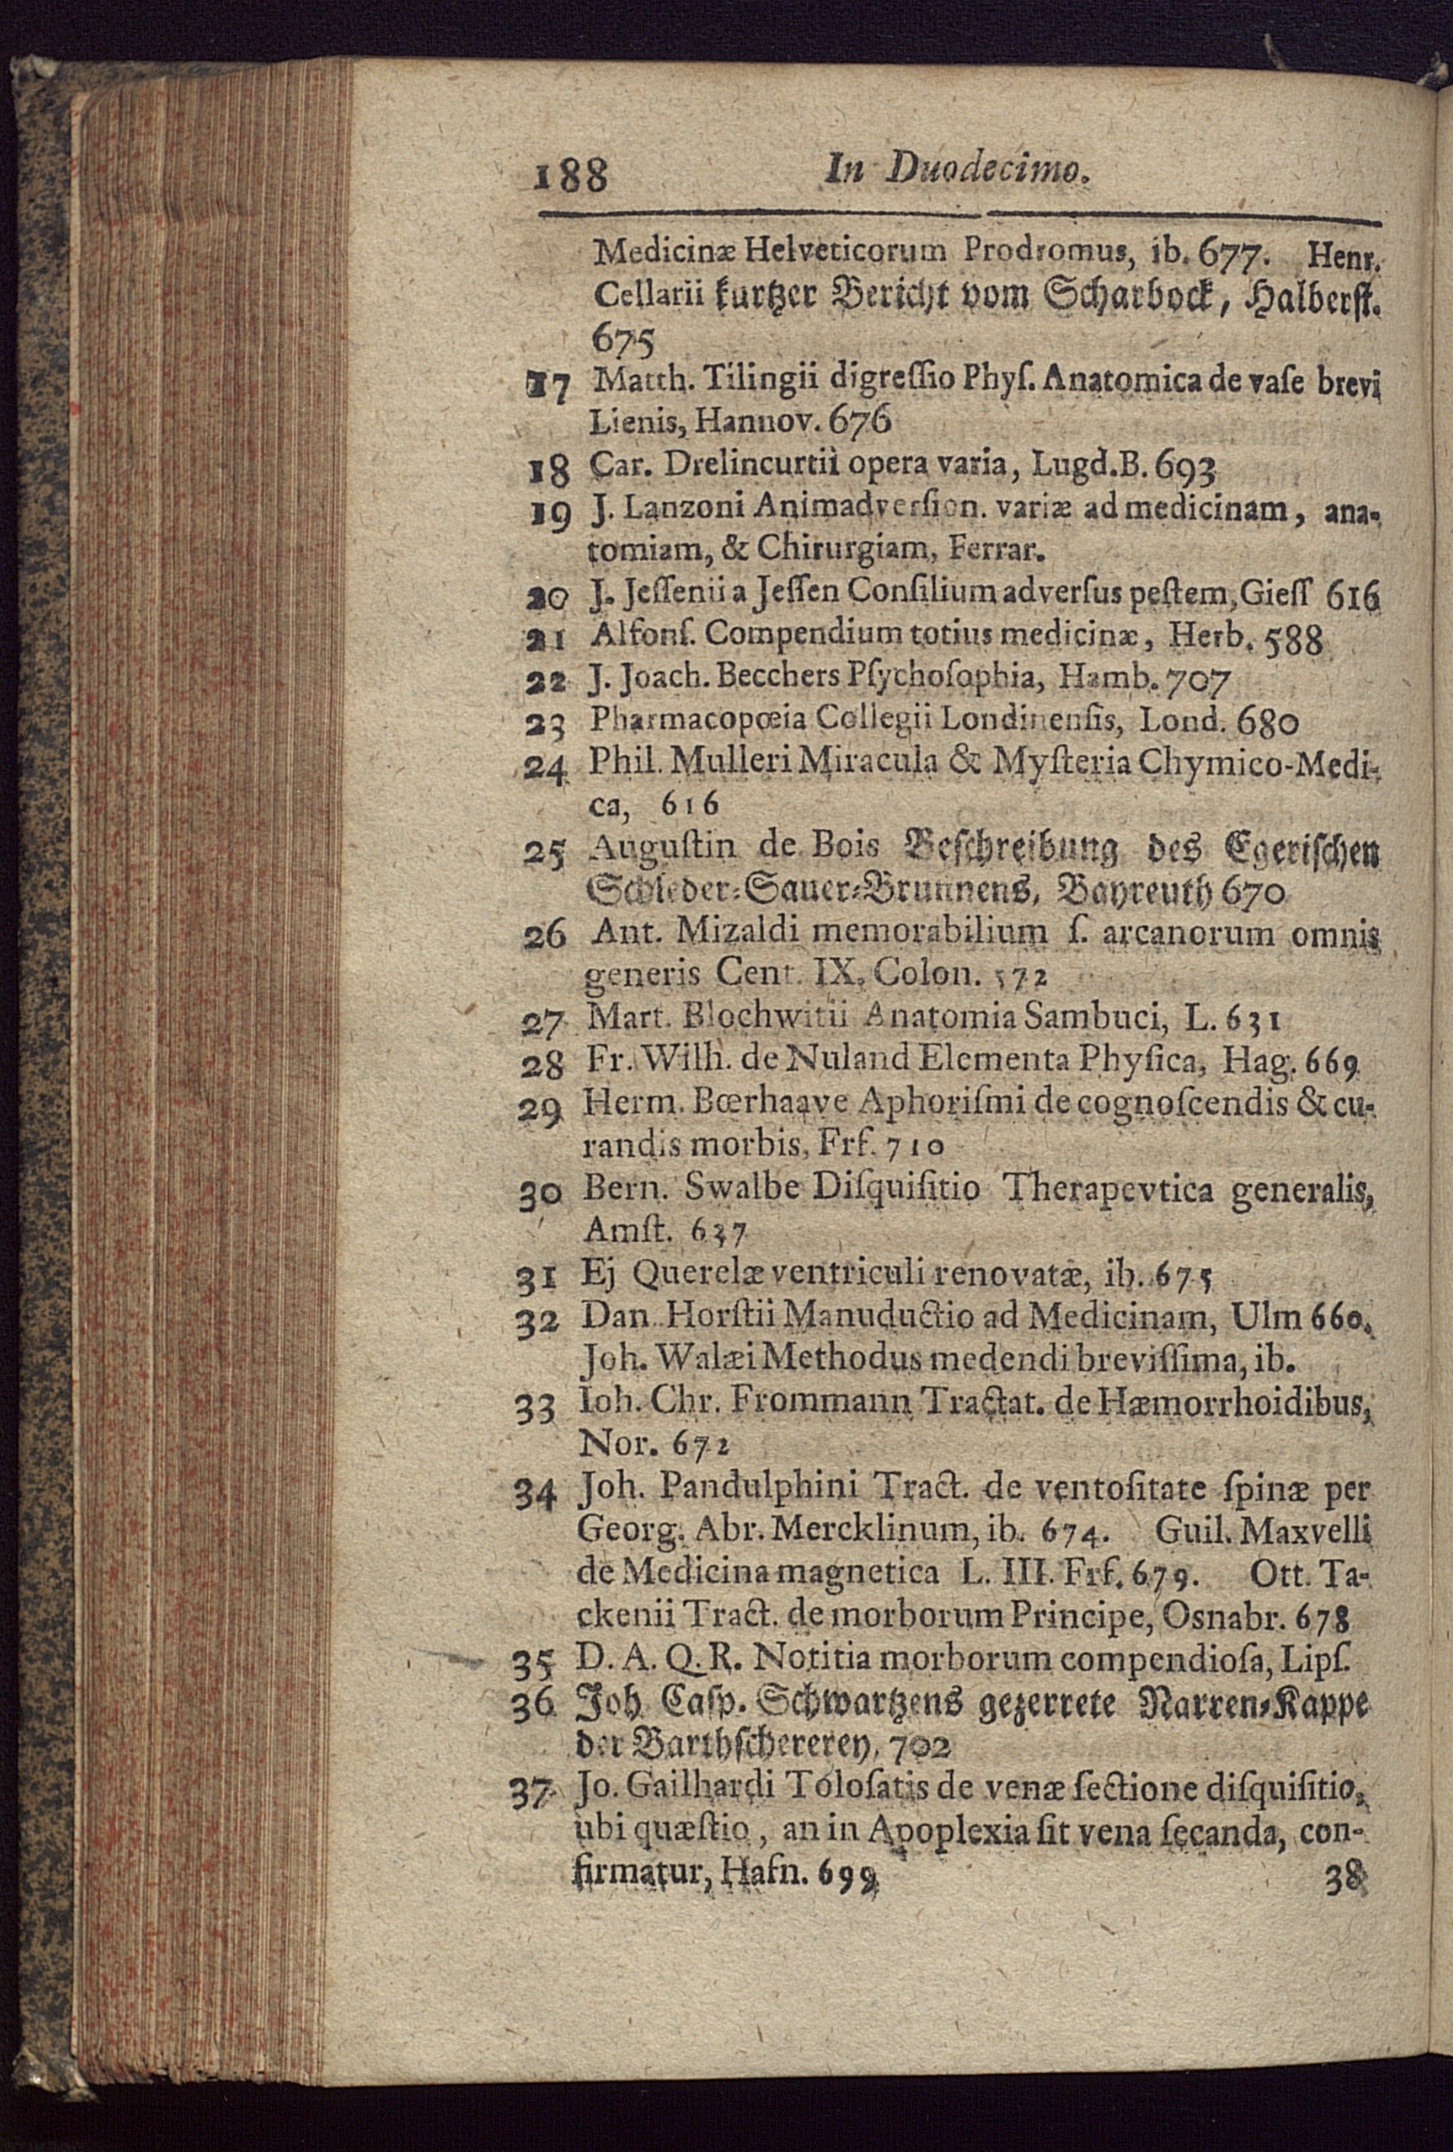 188 In Duodecimo.
Medicinæ Helveticorum Prodromus, ib. 677. Henr.
Cellarii kurtzer Bericht vom Scharbock, Halberst.
675
17 Matth. Tilingii digreſſio Phyſ. Anatomica de vaſe brevi
Lienis, Hannov. 676
18 Car. Drelincurtii opera varia, Lugd.B. 693
19 J. Lanzoni Animadverſion. variæ ad medicinam, ana-
tomiam, & Chirurgiam, Ferrar.
20 J. Jeſſenii a Jeſſen Conſilium adverſus peſtem, Gieſſ 616
21 Alfonſ. Compendium totius medicinæ, Herb. 588
22 J. Joach. Becchers Pſychoſophia, Hamb. 707
23 Pharmacopœia Collegii Londinenſis, Lond. 680
24 Phil. Mulleri Miracula & Myſteria Chymico-Medi-
ca, 616
25 Auguſtin de Bois Beſchreibung des Egeriſchen
Schleder-Sauer-Brunnens, Bayreuth 670
26 Ant. Mizaldi memorabilium ſ. arcanorum omnis
generis Cent. IX, Colon. 572
27 Mart. Blochwitii Anatomia Sambuci, L. 631
28 Fr. Wilh. de Nuland Elementa Phyſica, Hag. 669
29 Herm. Bœrhaave Aphoriſmi de cognoſcendis & cu-
randis morbis, Frf. 710
30 Bern. Swalbe Diſquiſitio Therapevtica generalis,
Amſt. 637
31 Ej Querelæ ventriculi renovatæ, ib. 675
32 Dan. Horſtii Manuductio ad Medicinam, Ulm 660.
Joh. Walæi Methodus medendi breviſſima, ib.
33 Ioh. Chr. Frommann Tractat. de Hæmorrhoidibus,
Nor. 672
34 Joh. Pandulphini Tract. de ventoſitate ſpinæ per
Georg. Abr. Mercklinum, ib. 674. Guil. Maxvelli
de Medicina magnetica L. III. Frf. 679. Ott. Ta-
ckenii Tract. de morborum Principe, Osnabr. 678
35 D. A. Q. R. Notitia morborum compendioſa, Lipſ.
36 Joh Caſp. Schwartzens gezerrete Narren-Kappe
der Barthſchererey, 702
37 Jo. Gailhardi Toloſatis de venæ ſectione diſquiſitio,
ubi quæſtio, an in Apoplexia ſit vena ſecanda, con-
firmatur, Hafn. 699
38